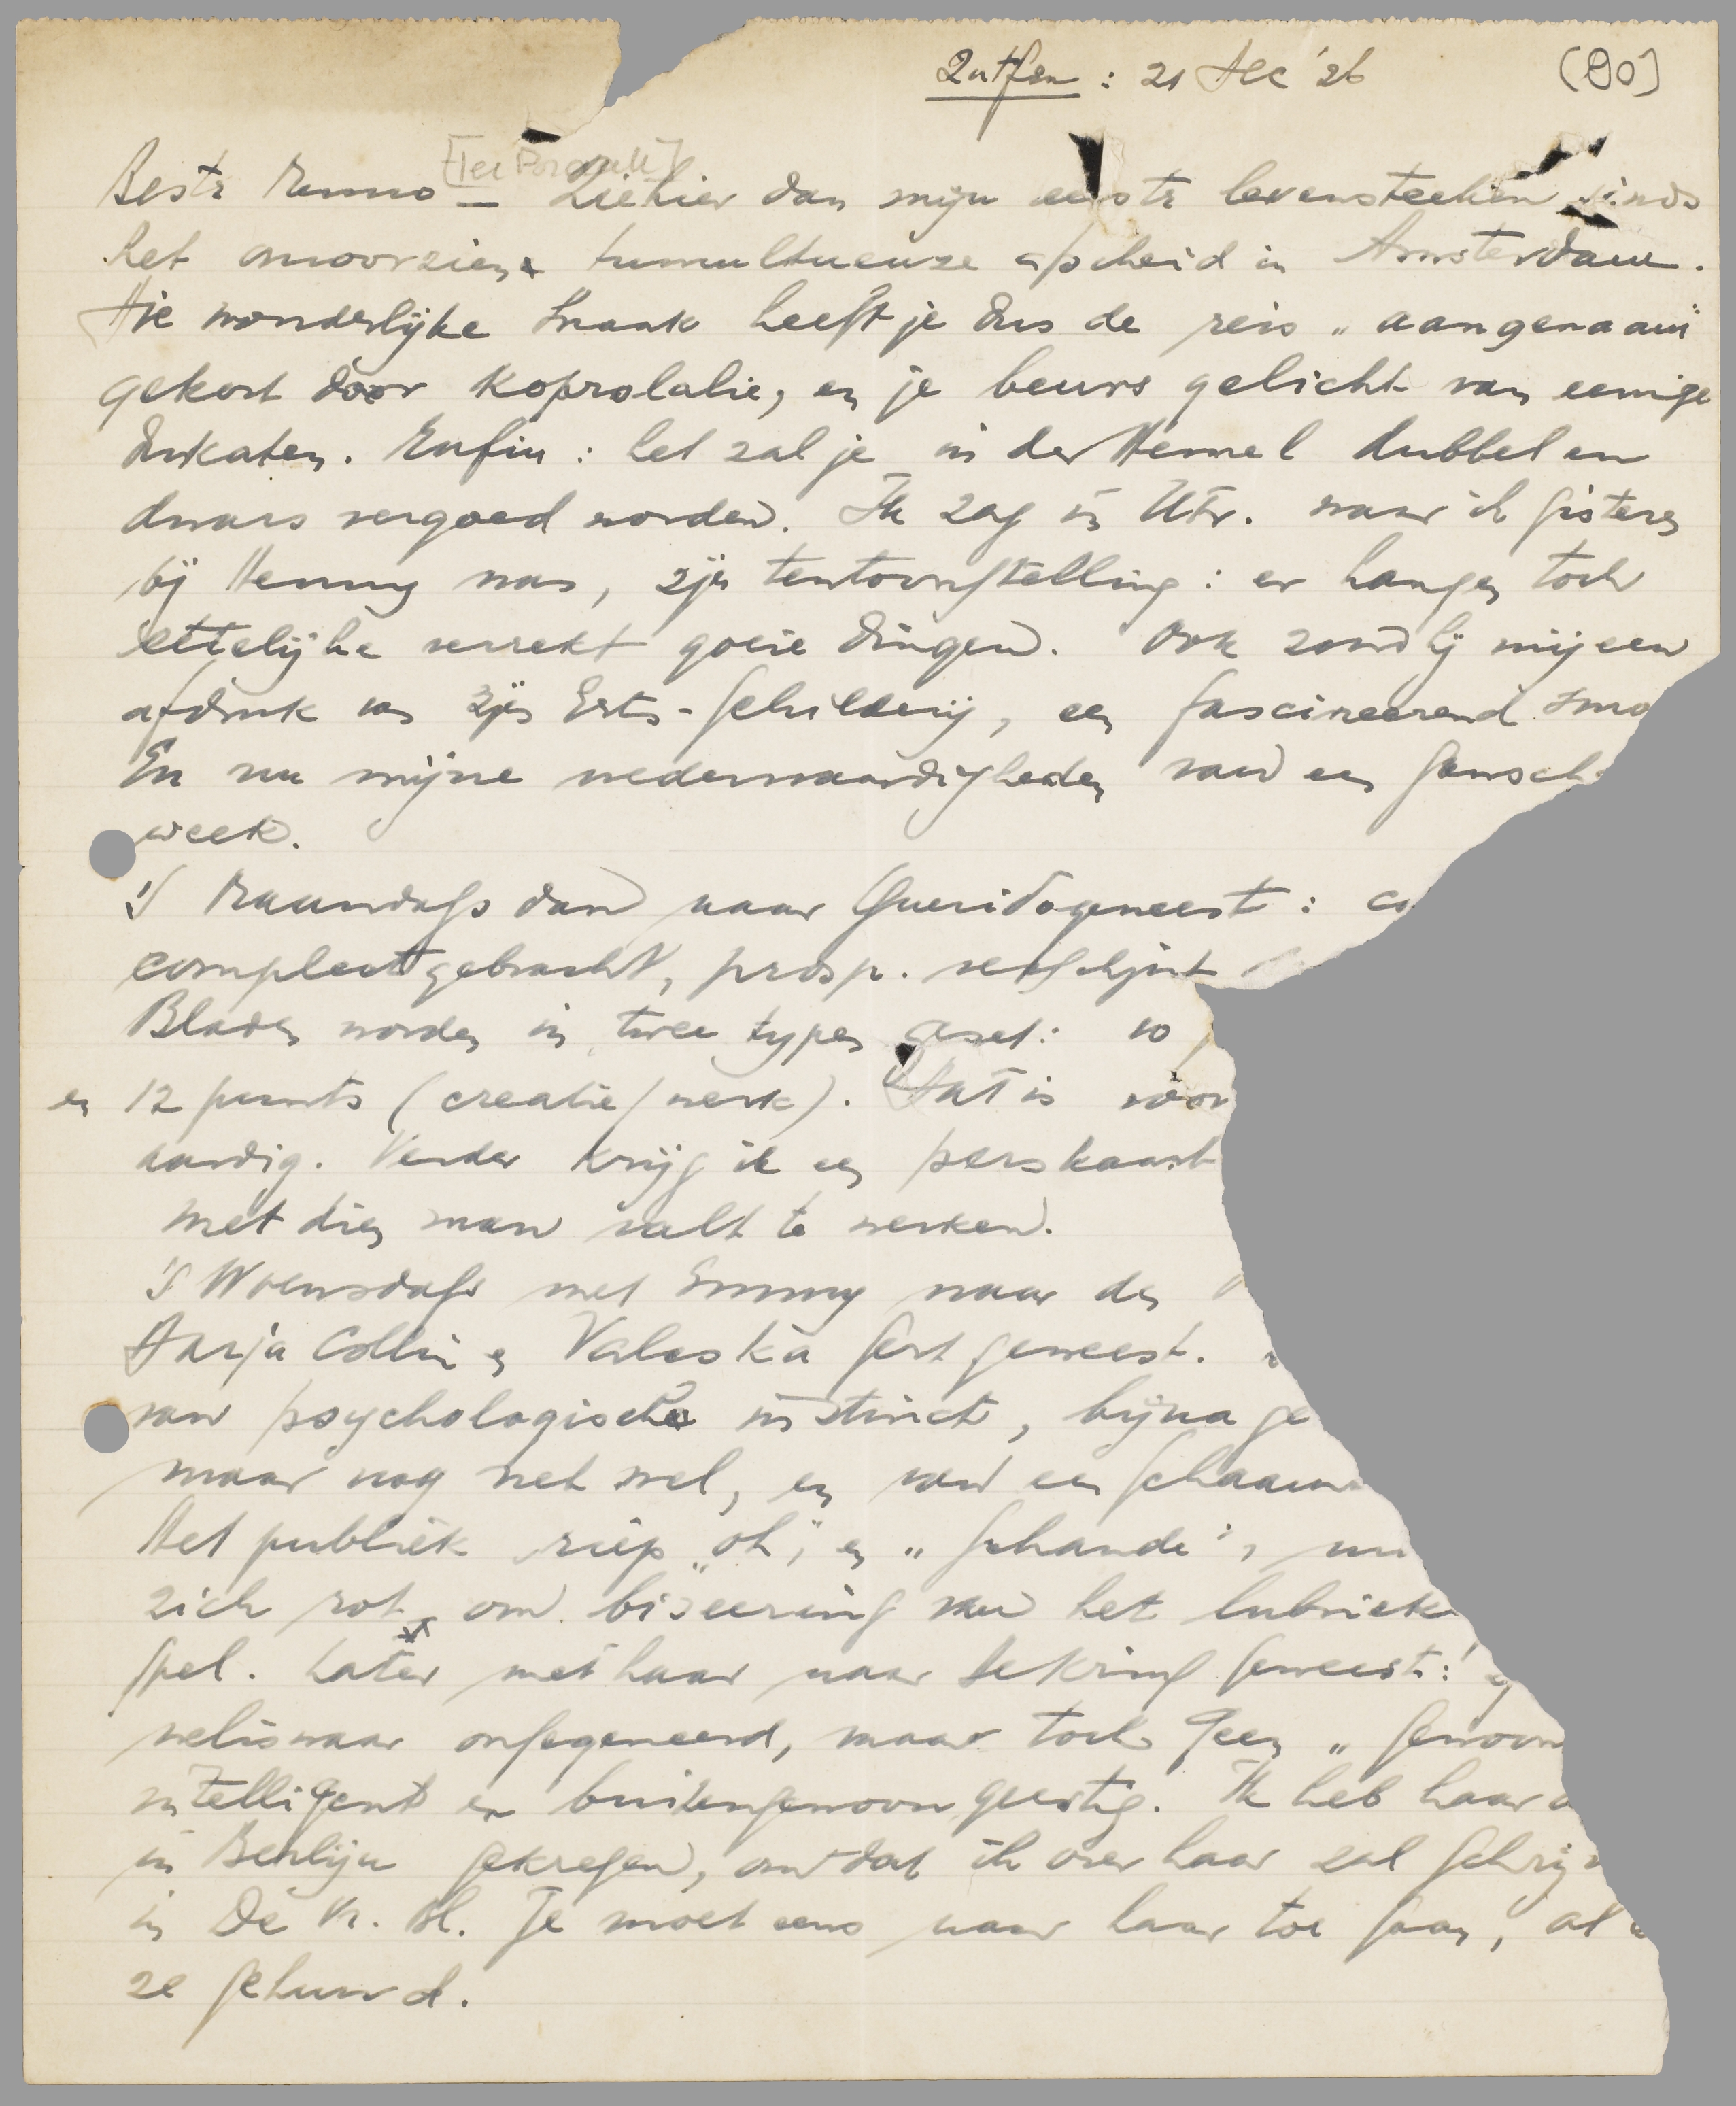 Zutfen : 21 Dec '26 (90)
[Ter Braak]
Beste Menno — Ziehier dan mijn eerste levensteeken sinds
het onvoorziene tumultueuze afscheid in Amsterdam.
Die wonderlijke Snaak heeft je dus de reis „aangenaam"
gekort door koprolalie, en je beurs gelicht van eenige
dukaten. Enfin : het zal je in den Hemel dubbel en
dwars vergoed worden. Ik zag in Utr. waar ik gisteren
bij Henny was, zijn tentoonstelling : er hangen toch
ettelijke verrekt goeie dingen. Ook zond hij mij een
afdruk van zijn Erts-schilderij, een fascineerend
En nu mijne wederwaardigheden van een gansche
week.
's Maandags dan naar Querido geweest :
compleet gebracht, prosp. verschijnt
Bladen worden in twee typen gezet: 10
en 12 punts (creatie/werk). Dat is voor
aardig. Verder krijg ik een perskaart
met dien man valt te werken.
's Woensdags met Emmy naar den
Darja Collin en Valeska Gert geweest.
van psychologische instinct, bijna ge
maar nog net wel, en van een schaam
Het publiek riep „oh", en „schande",
zich rot om biseering van het lubrieke
spel. Later met haar naar de Kring geweest :
weliswaar ongegeneerd, maar toch geen „gewoon
intelligent en buitengewoon geestig. Ik heb haar
in Berlijn gekregen, omdat ik over haar zal schrijv
in De Vr. Bl. Je moet eens naar haar toe gaan, al
ze gehuwd.